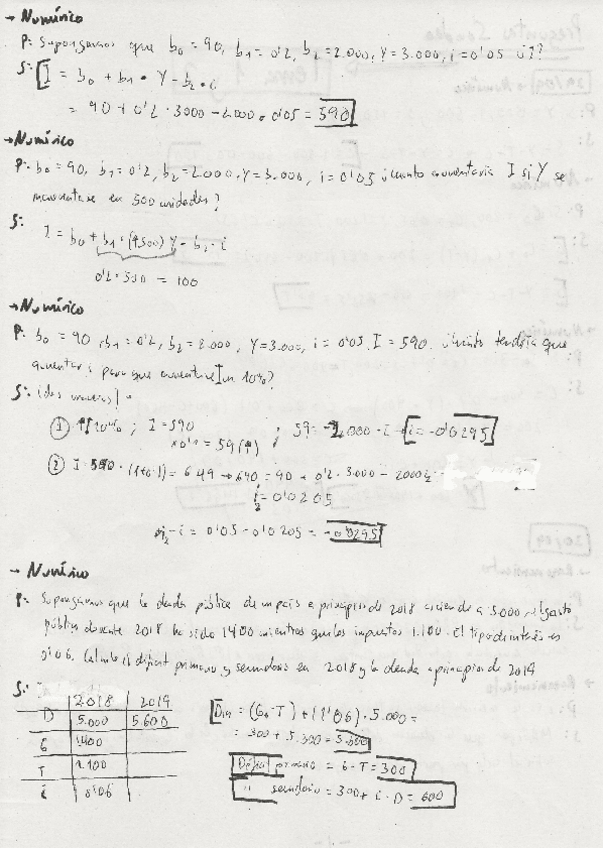 → Numérico
P: Supongamos que b₀ = 90, b₁ = 0'2, b₂ = 2.000, Y = 3.000, i = 0'05 ¿I?
S: I = b₀ + b₁ · Y - b₂ · i
= 90 + 0'2 · 3000 - 2000 · 0'05 = 590
→ Numérico
P: b₀ = 90, b₁ = 0'2, b₂ = 2.000, Y = 3.000, i = 0'05 ¿cuánto aumentaría I si Y se
incrementase en 500 unidades?
S: I = b₀ + b₁ · (+500) Y - b₂ · i
0'2 · 500 = 100
→ Numérico
P: b₀ = 90, b₁ = 0'2, b₂ = 2.000, Y = 3.000, i = 0'05 I = 590. ¿Cuánto tendría que
aumentar i para que aumentase I un 10%?
S: (dos maneras)
① ↑I 10% ; I = 590 ; 59 = -2.000 · i → i = -0'0295
× 0'1 = 59 (↑)
② I 590 · (1+0'1) = 649 → 649 = 90 + 0'2 · 3000 - 2000 i₂
i₂ = 0'0205
i₂ - i = 0'05 - 0'0205 = -0'0295
→ Numérico
P: Supongamos que la deuda pública de un país a principios de 2018 asciende a 5.000, el gasto
público durante 2018 ha sido 1400 mientras que los impuestos 1.100. El tipo de interés es
0'06. Calcula el déficit primario y secundario en 2018 y la deuda a principios de 2019
S:
2018 2019
D 5.000 5.600
G 1.400
T 1.100
i 0'06
= (G - T) + (1'06) · 5.000 =
= 300 + 5.300 = 5.600
Déficit primario = G - T = 300
" secundario = 300 + i · D = 600